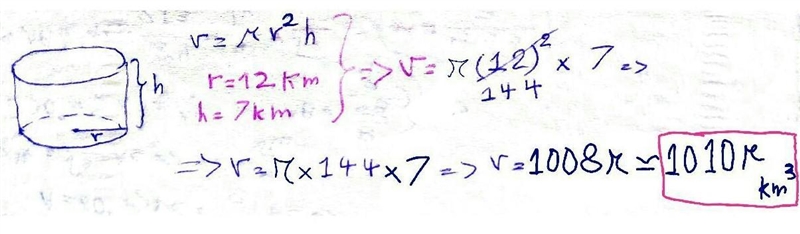 v = πr²h
r = 12 km
h = 7 km
h
r
} => v = π(12)² × 7 =>
144
=> v = π × 144 × 7 => v = 1008π ≃ 1010π km³